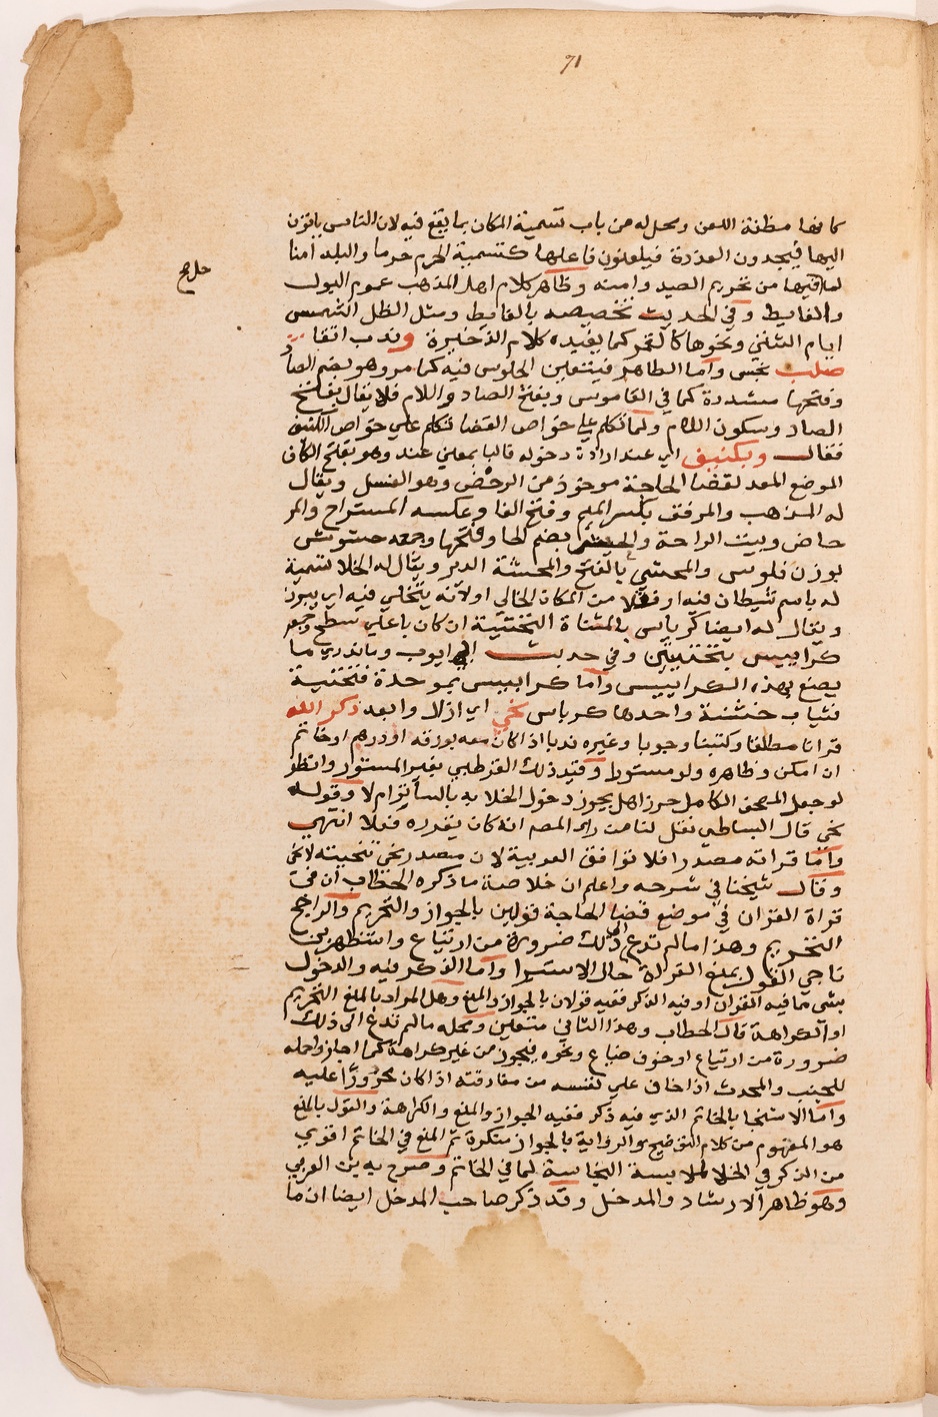 71
كانها مظنة اللعن ومحله من باب تسمية المكان بما يقع فيه لان الناس ياتون
اليها فيجدون العذرة فيلعنون فاعلها كتسمية الحرم حرما والبلد امنا
لما فيها من تحريم الصيد وامنه وظاهر كلام اهل المذهب عموم البول
والغايط وفي الحديث تخصيصه بالغايط ومثل الظل الشمس
ايام الشتي ونحوها كالقمر كما يفيده كلام الذخيرة وندب اتقا
صلب نجس واما الطاهر فيتعين الجلوس فيه كما مر وهو بضم الصاد
وفتحها مشددة كما في القاموس وبفتح الصاد واللام فلا يقال بفتح
الصاد وسكون اللام ولما تكلم علي خواص الفضا تكلم علي خواص الكنيف
فقال وبكنيف اي عند ارادة دخوله فالبا بمعني عند وهو بفتح الكاف
الموضع المعد لقضا الحاجة موخوذ من الرحض وهو الغسل ويقال
له المذهب والمرفق بكسر الميم وفتح الفا وعكسه المستراح والمر
حاض وبيت الراحة والحش بضم الحا وفتحها وجمعه حشوش
بوزن فلوس والمحشي بالفتح والمحشة الدبر ويقال له الخلا تسمية
له باسم شيطان فيه او نقلا من المكان الخالي او لانه يتخلي فيه اي يبرز
ويقال له ايضا كرياس بالمثناة التحتية ان كان باعلي سطح وجمعه
كراييس بتحتيتين وفي حديث ابي ايوب وما ندري ما
يصنع بهذه الكراييس واما كرابيس بموحدة فتحتية
فثياب خشنة واحدها كرباس نحي اي ازال وابعد ذكر الله
قرانا مطلقا وكتبنا وجوبا وغيره ندبا اذا كان معه بورقه او درهم او خاتم
ان امكن وظاهره ولو مستورا وقيد ذلك القرطبي بغير المستور وانظر
لو جعل المصحف الكامل حرزا هل يجوز دخول الخلا به بالساتر ام لا وقوله
نحي قال البساطي نقل لنا من راي المصه انه كان يقدره فعلا انتهي
واما قراته مصدرا فلا توافق العربية لان مصدر نحي تنحيته لا نحي
وقال شيخنا في شرحه واعلم ان خلاصة ما ذكره الحطاب ان في
قراة القران في موضع قضا الحاجة قولين بالجواز والتحريم والراجح
التحريم وهذا ما لم تدع الي ذلك ضرورة من ارتياع واستظهر بن
ناجي القول بمنع القراة حال الاستبرا واما الذكر فيه والدخول
بشي مما فيه القران او فيه الذكر ففيه قولان بالجواز والمنع وهل المراد بالمنع التحريم
او الكراهة قال الحطاب وهذا الثاني متعين ومحله ما لم تدع الي ذلك
ضرورة من ارتياع او خوف ضياع ونحوه فيجوز من غير كراهة كما اجاز واحمله
للجنب والمحدث اذا خاف علي نفسه من مفارقته اذا كان محروزا عليه
واما الاستنجا بالخاتم الذي فيه ذكر ففيه الجواز والمنع والكراهة والقول بالمنع
هو المفهوم من كلام التوضيح والرواية بالجواز منكرة ثم المنع في الخاتم اقوي
من الذكر في الخلا لملابسة النجاسة لما في الخاتم وصرح به بن العربي
وهو ظاهر الارشاد والمدخل وقد ذكر صاحب المدخل ايضا ان ما